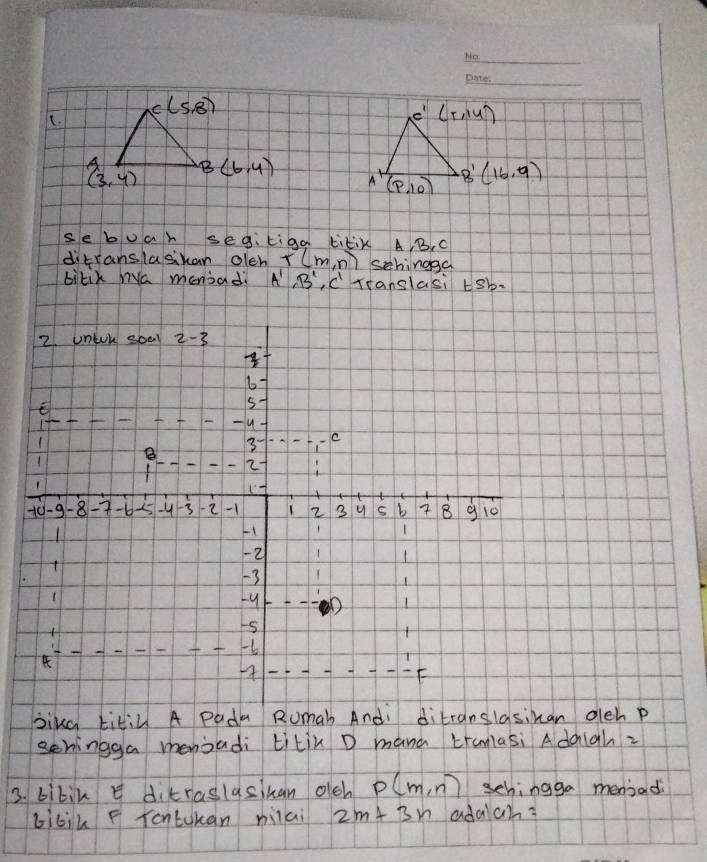 No.
Date:
1.
C(5,8) C' (r,14)
A B(6,4) A' B' (16,9)
(3,4) (P,10)
sebuah segitiga titik A,B,C
ditranslasikan oleh T(m,n) sehingga
titik nya menjadi A',B',C' Translasi tsb.
2 untuk soal 2-3
6
5
E 4
3 C
B 2
1
-10 -9 -8 -7 -6 -5 -4 -3 -2 -1 1 2 3 4 5 6 7 8 9 10
-1
-2
-3
-4 D
-5
A -6
-7 F
Jika titik A Pada Rumah Andi ditranslasikan oleh P
sehingga menjadi titik D mana tranlasi Adalah =
3. titik E ditraslasikan oleh P(m,n) sehingga menjadi
titik F Tentukan nilai 2m + 3n adalah =